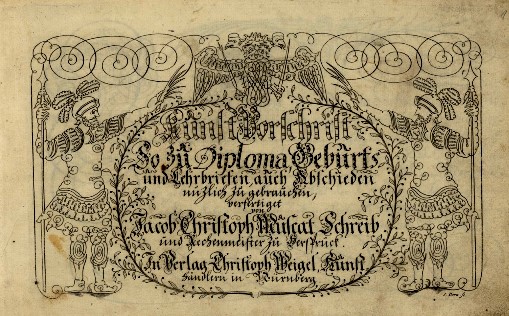 Kunst Vorschrift
So zu Diploma, Geburts
und Lehrbriefen auch Abschieden
nuzlich zu gebrauchen,
verfertiget
von
Jacob Christoph Muscat Schreib
und Rechenmeister zu Herspruck.
In Verlag Christoph Weigel, Kunst
händlern in Nürnberg